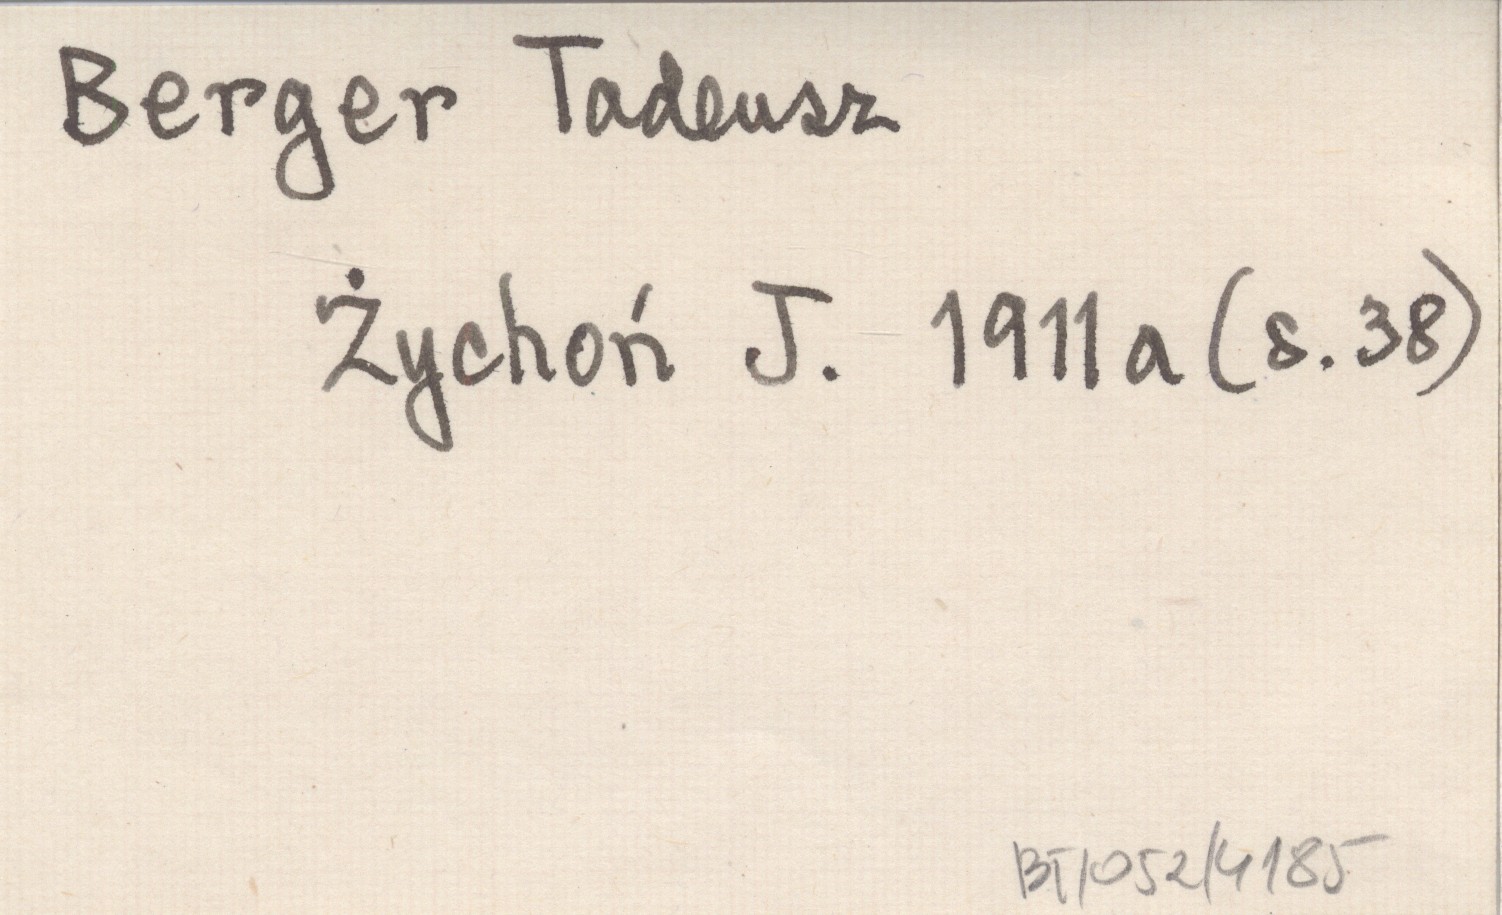 Berger Tadeusz
Żychoń J. 1911a (s. 38)
BT/052/4185